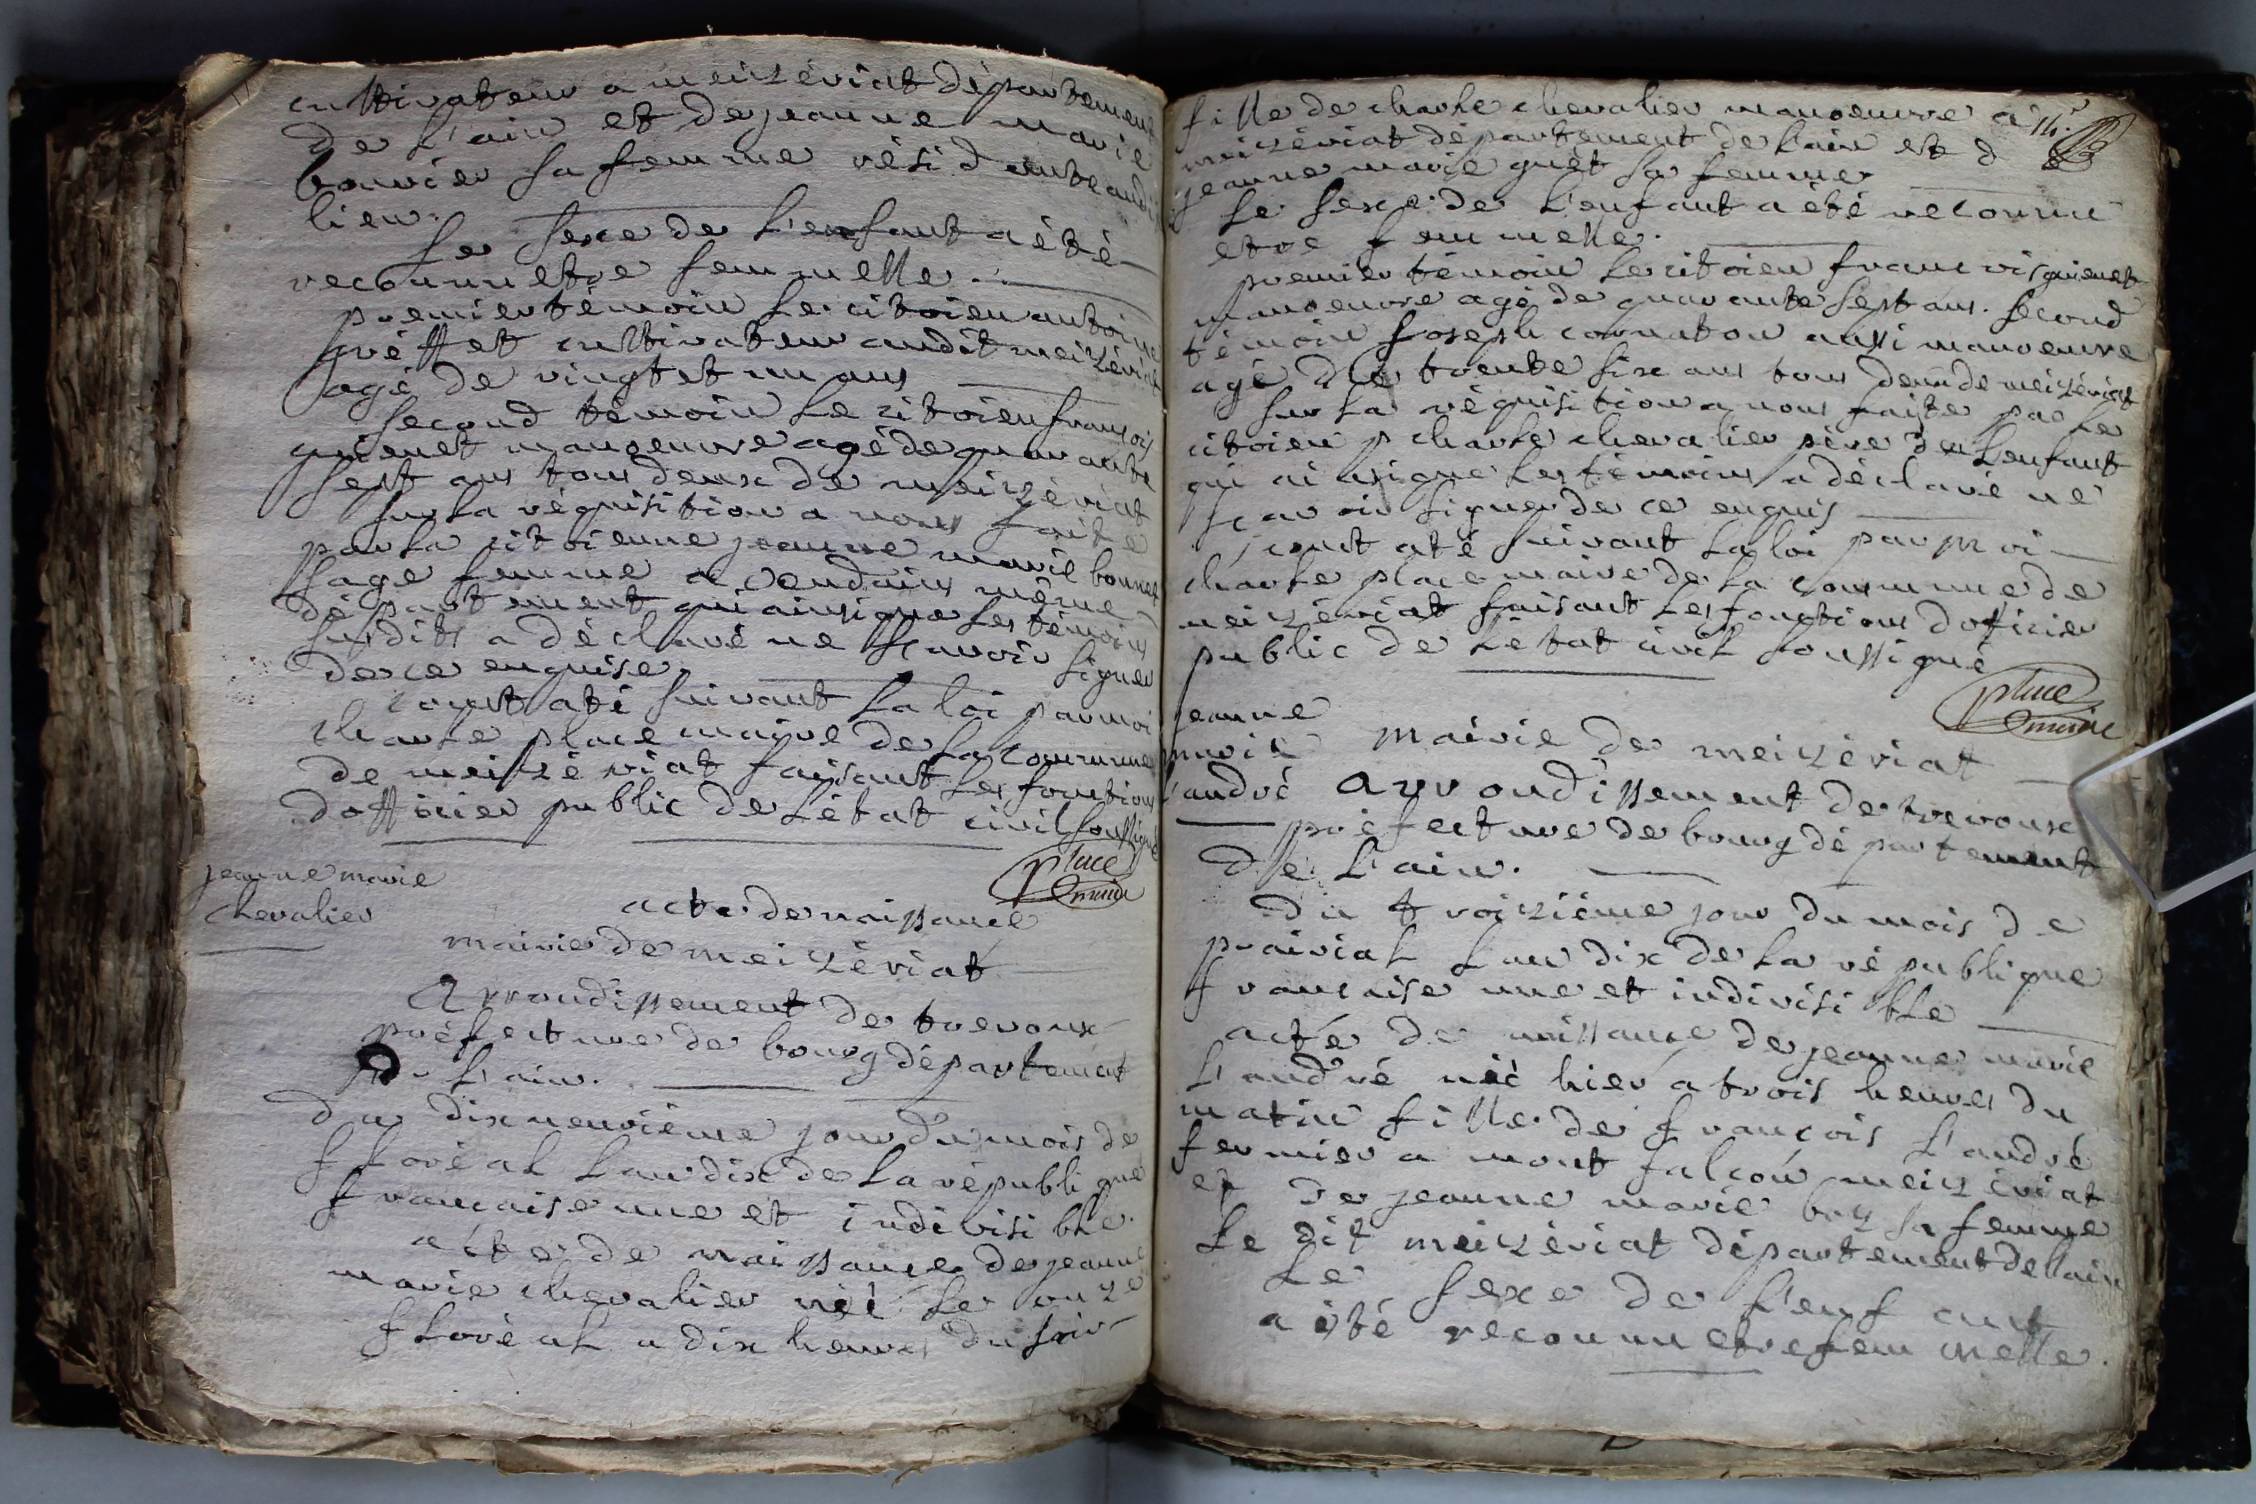 cultivateur a meizériat département
de l'ain et de jeanne marie
bouvier sa femme résident audi
lieu.
Le sexe de l'enfant a été
reconnu etre femmelle.
premier témoin le citoien antoine
gréffet cultivateur audit meizériat
agé de vingt et un ans
second témoin le citoien fransois
guienet manoeuvre agé de quarante
sept ans tous deux de meizériat
sur la réquisition a nous faite
par la citoienne jeanne marie bonnet
sage femme a Vendains même
département qui ainsi que les témoins
susdits a déclaré ne sçavoir signer
de ce enquise.
constaté suivant la loi par moi
charle place maire de la commune
de meizériat faisant les fonctions
dofficier public de l'état civil soussigné
place
maire
jeanne marie
chevalier
acte de naissance
mairie de meizériat
Arrondissement de trevoux
préfecture de bourg département
de l'ain.
du dixneuvième jour du mois de
floréal l'an dix de la république
francaise une et indivisible.
acte de naissance de jeanne
marie chevalier née le onze
floréal a dix heures du soir
fille de charle chevalier manoeuvre a
meizériat département de l'ain et d
jeanne marie guét sa femme
Le sexe de l'enfant a été reconnu
etre femmelle.
premier témoin le citoien francois guienet
manoeuvre agé de quarante sept ans. second
témoin joseph cornaton aussi manoeuvre
agé de trente six ans tous deux de meizériat
sur la réquisition a nous faite par le
citoien charle chevalier père de l'enfant
qui ainsi que les témoins a déclaré ne
sçavoir signer de ce enquis
constaté suivant la loi par moi
charle place maire de la commune de
meizériat faisant les fonctions dofficier
public de l'état civil soussigné
place
maire
jeanne
marie
l'andré
mairie de meizériat
arrondissement de trevoux
préfecture de bourg département
de l'ain.
du troizième jour du mois de
prairial l'an dix de la république
francaise une et indivisible
acte de naissance de jeanne marie
l'andré née hier a trois heures du
matin fille de françois l'andré
fermier a mont falcon meizériat
et de jeanne marie sa femme
le dit meizériat département de lain
Le sexe de l'enfant
a été reconnu etre femmelle.